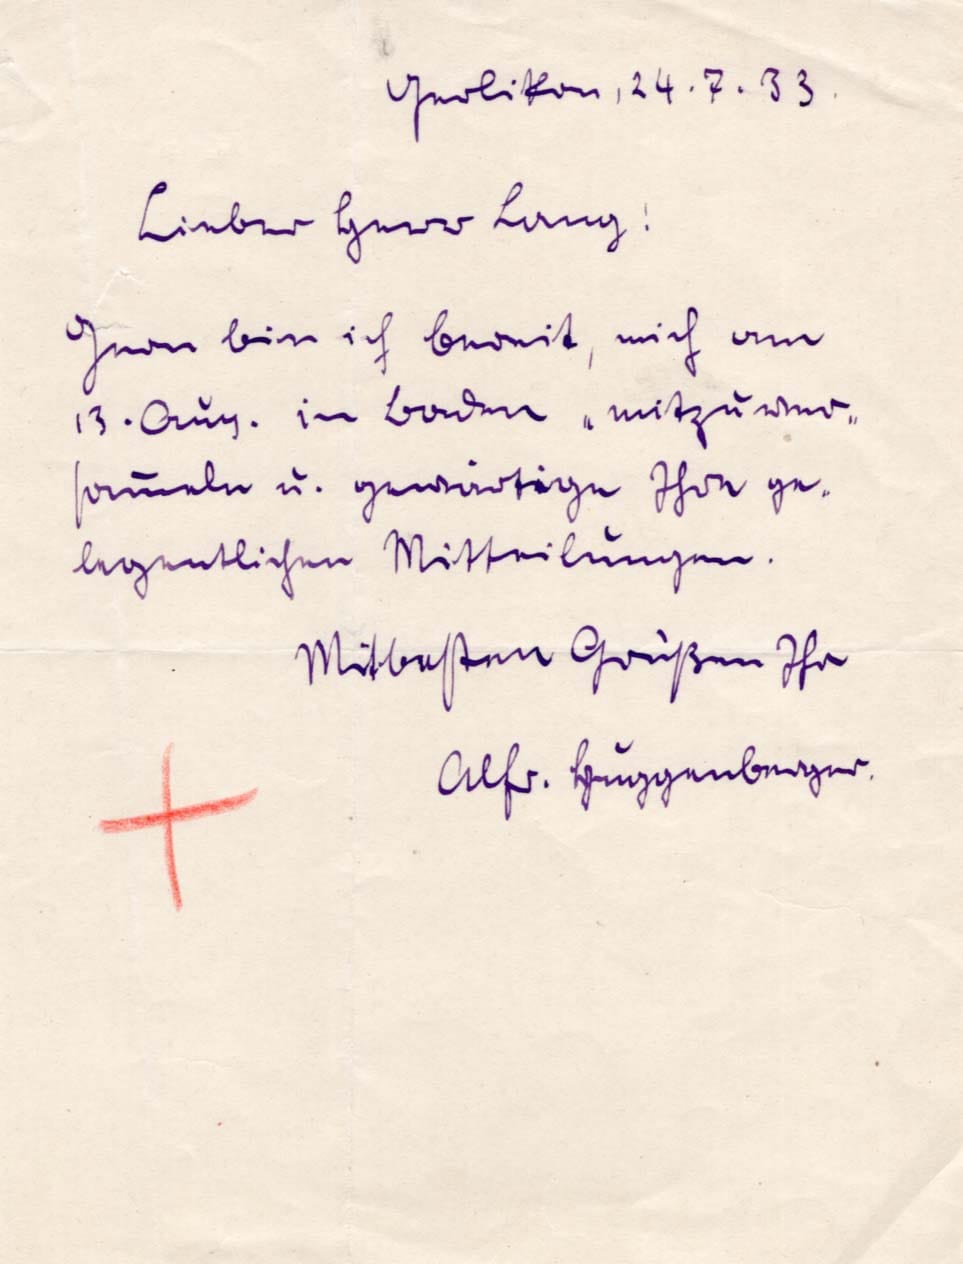 Gerlikon, 24.7.33.
Lieber Herr Lang!
Gern bin ich bereit, mich am
13. Aug. in Baden „mitzuver-
sam̅eln u. gewärtige Ihre ge-
legentlichen Mitteilungen.
Mit besten Grüßen Ihr
Alfr. Huggenberger.